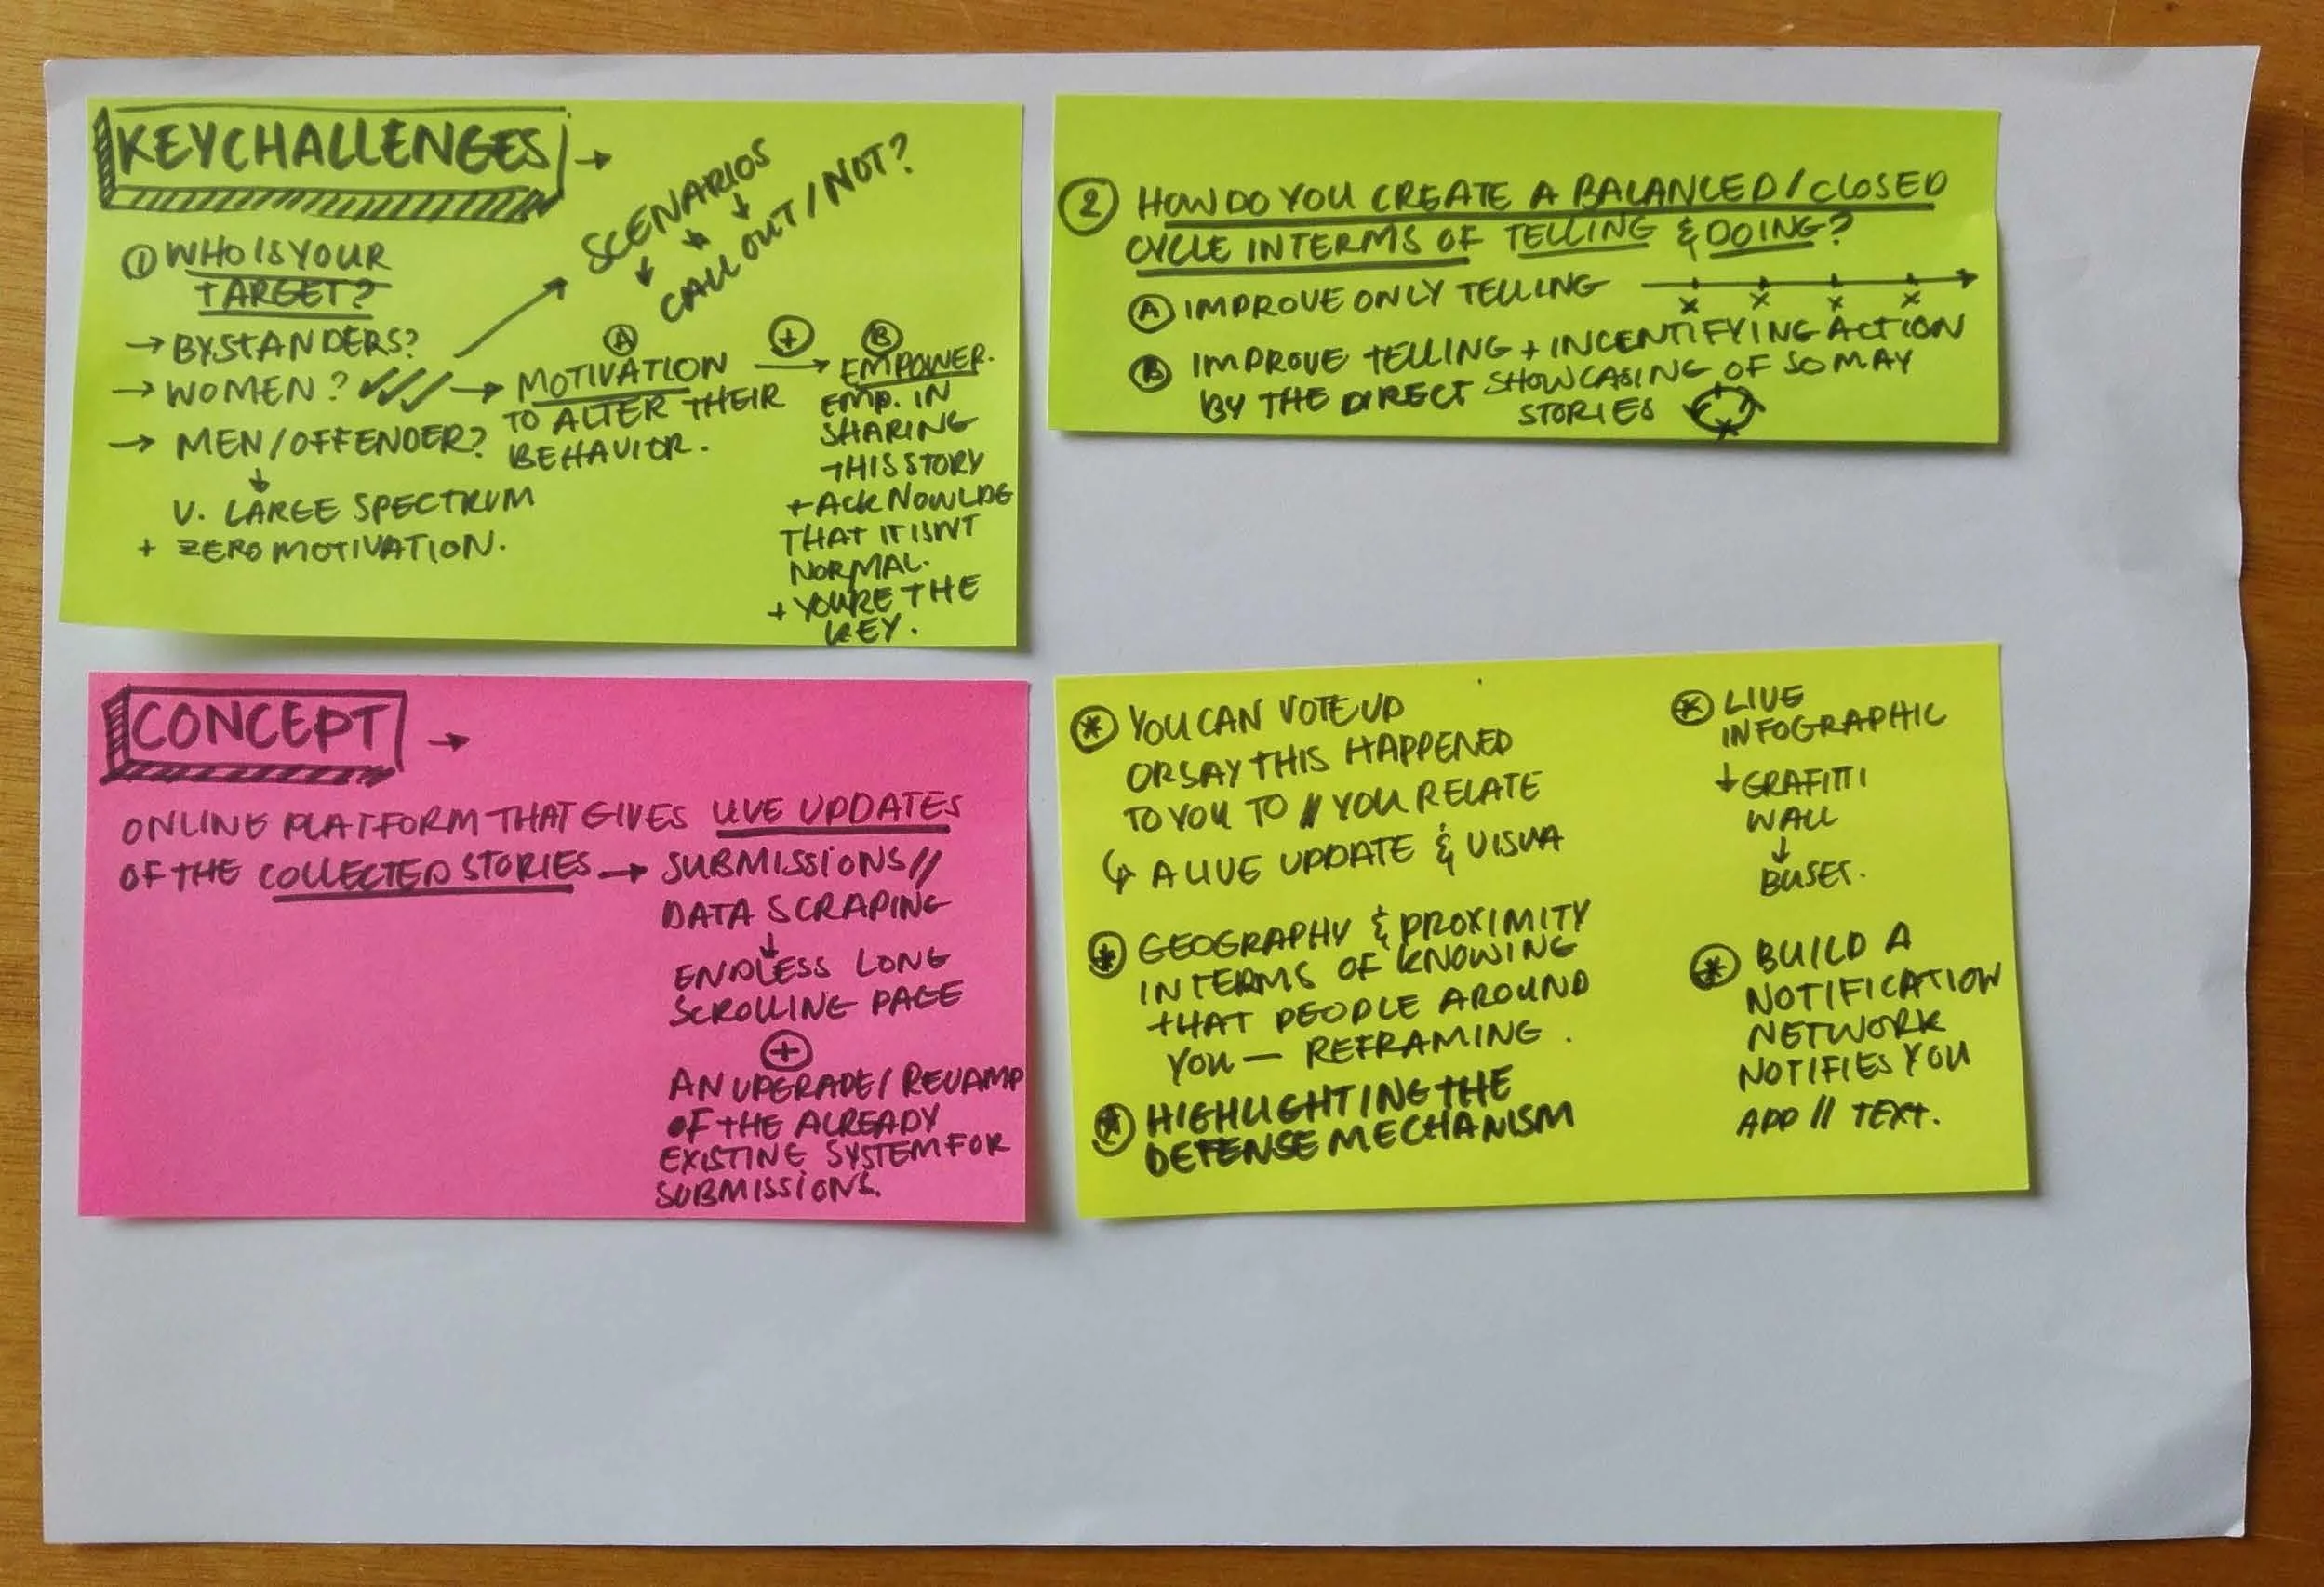 KEY CHALLENGES →
SCENARIOS
CALL OUT / NOT?
① WHO IS YOUR
TARGET?
→ BYSTANDERS?
→ WOMEN?
→ MEN/OFFENDER?
V. LARGE SPECTRUM
+ ZERO MOTIVATION.
Ⓐ
MOTIVATION
TO ALTER THEIR
BEHAVIOR.
⊕
Ⓑ
EMPOWER.
EMP. IN
SHARING
THIS STORY
+ ACKNOWLDG
THAT IT ISNT
NORMAL.
+ YOU'RE THE
KEY.
② HOW DO YOU CREATE A BALANCED/CLOSED
CYCLE INTERMS OF TELLING & DOING?
Ⓐ IMPROVE ONLY TELLING
Ⓑ IMPROVE TELLING + INCENTIFYING ACTION
BY THE DIRECT SHOWCASING OF SO MAY
STORIES
CONCEPT →
ONLINE PLATFORM THAT GIVES LIVE UPDATES
OF THE COLLECTED STORIES → SUBMISSIONS//
DATA SCRAPING
↓
ENDLESS LONG
SCROLLING PAGE
⊕
AN UPGRADE/REVAMP
OF THE ALREADY
EXISTING SYSTEM FOR
SUBMISSIONS.
* YOU CAN VOTE UP
OR SAY THIS HAPPENED
TO YOU TO // YOU RELATE
↳ A LIVE UPDATE & VISUA
* GEOGRAPHY & PROXIMITY
INTERMS OF KNOWING
THAT PEOPLE AROUND
YOU — REFRAMING.
* HIGHLIGHTING THE
DEFENSE MECHANISM
* LIVE
INFOGRAPHIC
↓ GRAFITTI
WALL
↓
BUSES.
* BUILD A
NOTIFICATION
NETWORK
NOTIFIES YOU
APP // TEXT.